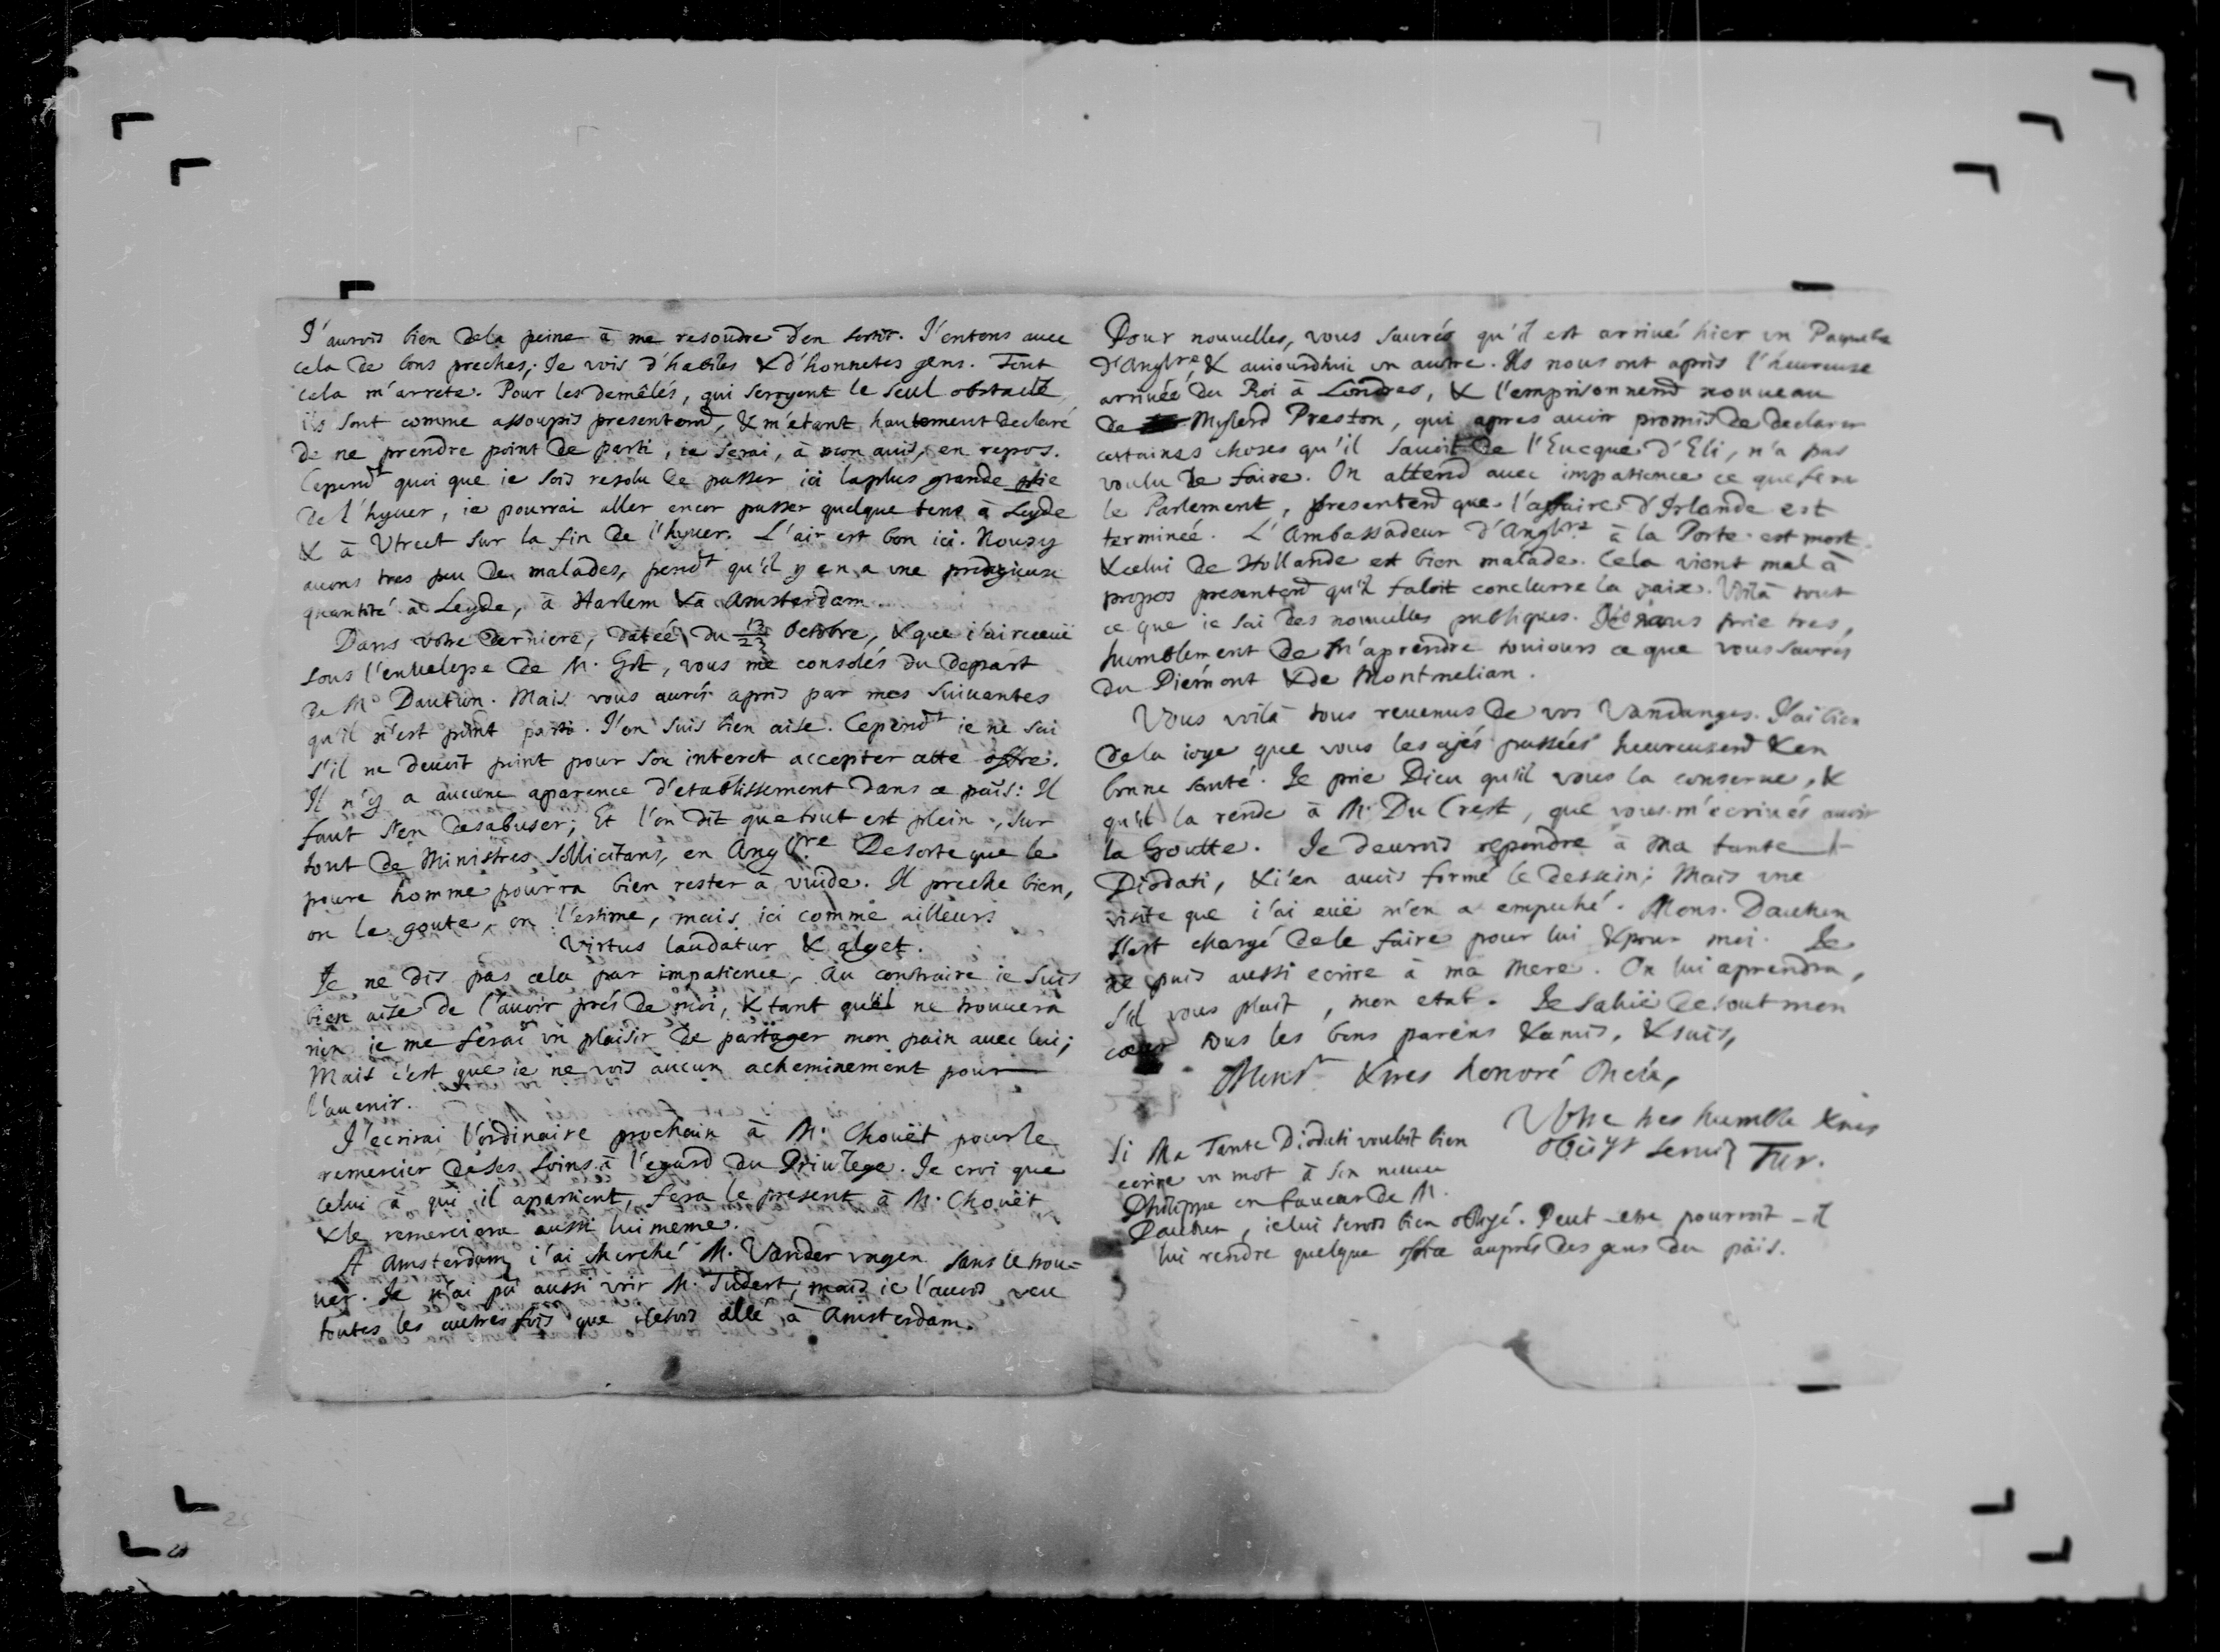 J'aurois bien dela peine à me resoudre d'en sortir. J'entens auec
cela de bons preches; Je vois d'habiles & d'honnetes gens. Tout
cela m'arrete. Pour les demêlés, qui seroyent le seul obstacle
ils sont comme assoupis presentemt, & m'étant hautement declaré
de ne prendre point de parti, ie serai, à mon auis, en repos.
Cependt quoi que ie sois resolu de passer ici laplus grande ptie
de l'hyuer, ie pourrai aller encor passer quelque tems à Leyde
& à Vtrect sur la fin de l'hyuer. L'air est bon ici. Nous y
auons tres peu de malades, pendt qu'il y en a vne prodigieuse
quantité à Leyde, à Harlem & à Amsterdam.
Dans votre derniere, datée du 13/23 Octobre, & que i'ai receuë
sous l'enuelope de M. Grt, vous me consolés du depart
de Mr Dautun. Mais vous aurés apris par mes suiuantes
qu'il n'est point parti. J'en suis bien aise. Cependt ie ne sai
s'il ne deuoit point pour son interet accepter cette offre.
Il n'y a aucune aparence d'etablissement dans ce païs: Il
faut s'en desabuser; Et l'on dit que tout est plein, sur
tout de Ministres sollicitans, en Anglre. De sorte que le
poure homme pourra bien rester à vuide. Il preche bien,
on le goute, on l'estime, mais ici comme ailleurs
Virtus laudatur & alget.
Je ne dis pas cela par impatience, Au contraire ie suis
bien aise de l'auoir prés de moi, & tant qu'il ne trouuera
rien ie me ferai vn plaisir de partager mon pain auec lui;
Mais c'est que ie ne vois aucun acheminement pour
l'auenir.
J'ecrirai l'ordinaire prochain à M. Chouët pour le
remercier de ses soins à l'egard du Priuilege. Je croi que
celui à qui il apartient, fera le present à M. Chouët
& le remerciera aussi lui meme.
A Amsterdam i'ai cherché M. Vander vagen sans le trou=
uer. Je n'ai pû aussi voir M. Tudert, mais ie l'auois veu
toutes les autres fois que i'etois allé à Amsterdam.
Pour nouvelles, vous saurés qu'il est arriué hier vn Paquebot
d'Anglre, & auiourdhui vn autre. Ils nous ont apris l'heureuse
arriuée du Roi à Londres, & l'emprisonnemt nouueau
de Mylord Preston, qui apres auoir promis de declarer
certaines choses qu'il sauoit de l'Eueque d'Eli, n'a pas
voulu le faire. On attend auec impatience ce que fera
le Parlement, presentemt que l'affaire d'Irlande est
terminée. L'Ambassadeur d'Anglre à la Porte est mort
& celui de Hollande est bien malade. Cela vient mal à
propos presentemt qu'il faloit conclurre la paix. Voilà tout
ce que ie sai des nouuelles publiques. Je vous prie tres
humblement de m'aprendre touiours ce que vous saurés
du Piémont & de Montmelian.
Vous voilà tous reuenus de vos Vandanges. J'ai bien
dela ioye que vous les ayés passées heureusemt & en
bonne santé. Je prie Dieu qu'il vous la conserue, &
qu'il la rende à M. Du Crest, que vous m'ecriués auoir
la Goutte. Je deurois repondre à ma tante
Diodati, & i'en auois formé le dessein; Mais vne
visite que i'ai euë m'en a empeché. Mons. Dautun
s'est chargé de le faire pour lui & pour moi. Je
ne puis aussi ecrire à ma Mere. On lui aprendra,
s'il vous plait, mon etat. Je saluë de tout mon
coeur tous les bons parens & amis, & suis,
Monsr & tres honoré
Votre tres humble & tres
obeisst seruitr Tur.
Si Ma Tante Diodati vouloit bien
ecrire vn mot à son neueu
Philippe en faueur de M.
Dautun, ie lui serois bien obligé. Peut-etre pourroit-il
lui rendre quelque office auprés des gens du païs.